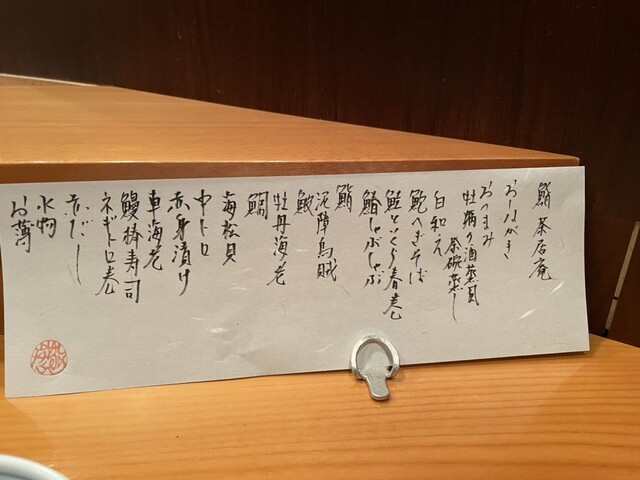 鮨 茶屋庵
おしながき
おつまみ
牡蠣の酒蒸し
茶碗蒸し
白和え
鮑へぎそば
鮭といくら春巻
鰆しゃぶしゃぶ
鮨
泥障烏賊
鰍
牡丹海老
鯛
海松貝
中トロ
赤身漬け
車海老
鰻棒寿司
ネギトロ巻
赤だし
水物
お薄